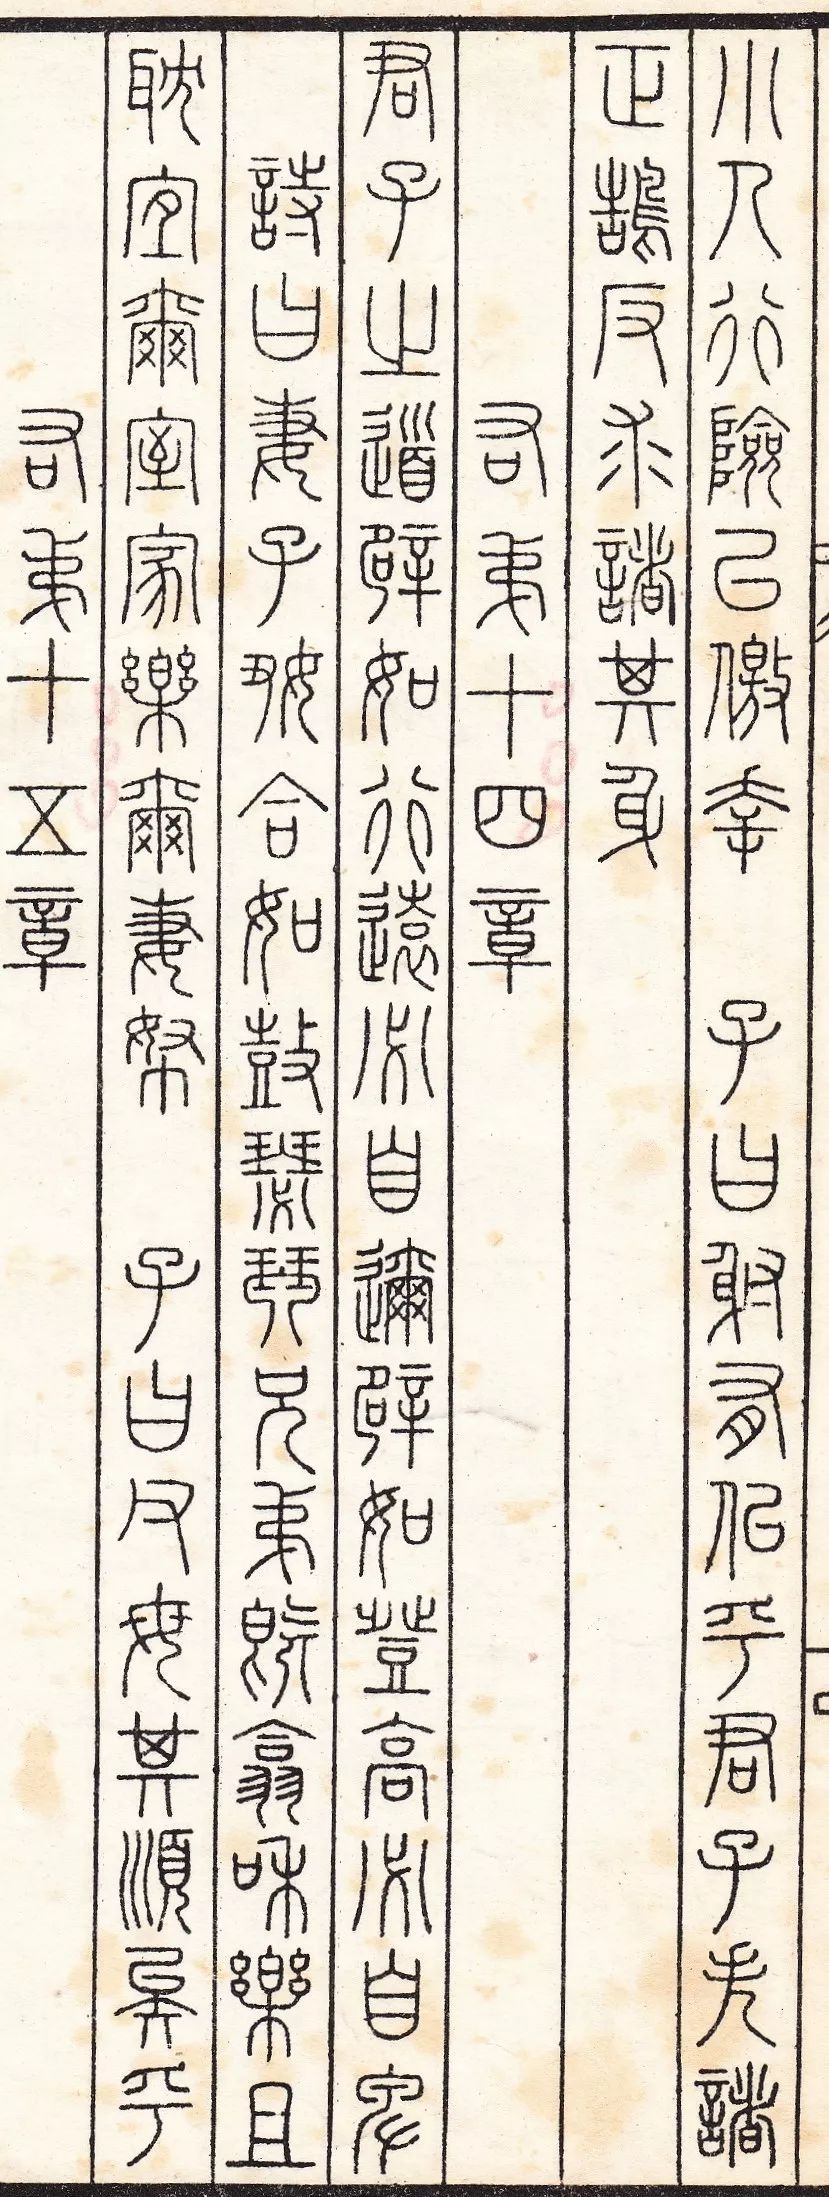 小人行險以徼幸　子曰射有似乎君子失諸
正鵠反求諸其身
右弟十四章
君子之道辟如行遠必自邇辟如登高必自卑
詩曰妻子好合如鼓瑟琴兄弟既翕和樂且
耽宜爾室家樂爾妻帑　子曰父母其順矣乎
右弟十五章